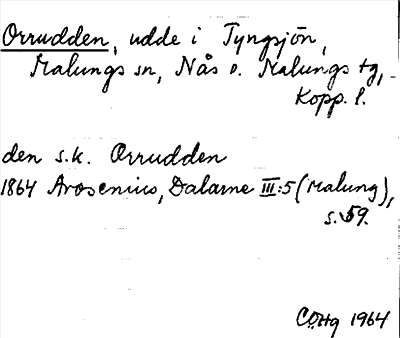 Orrudden, udde i Tyngsjön,
Malungs sn, Nås o. Malungs tg,
Kopp. l.
den s.k. Orrudden
1864 Arosenius, Dalarne III:5 (Malung),
s. 59.
1964